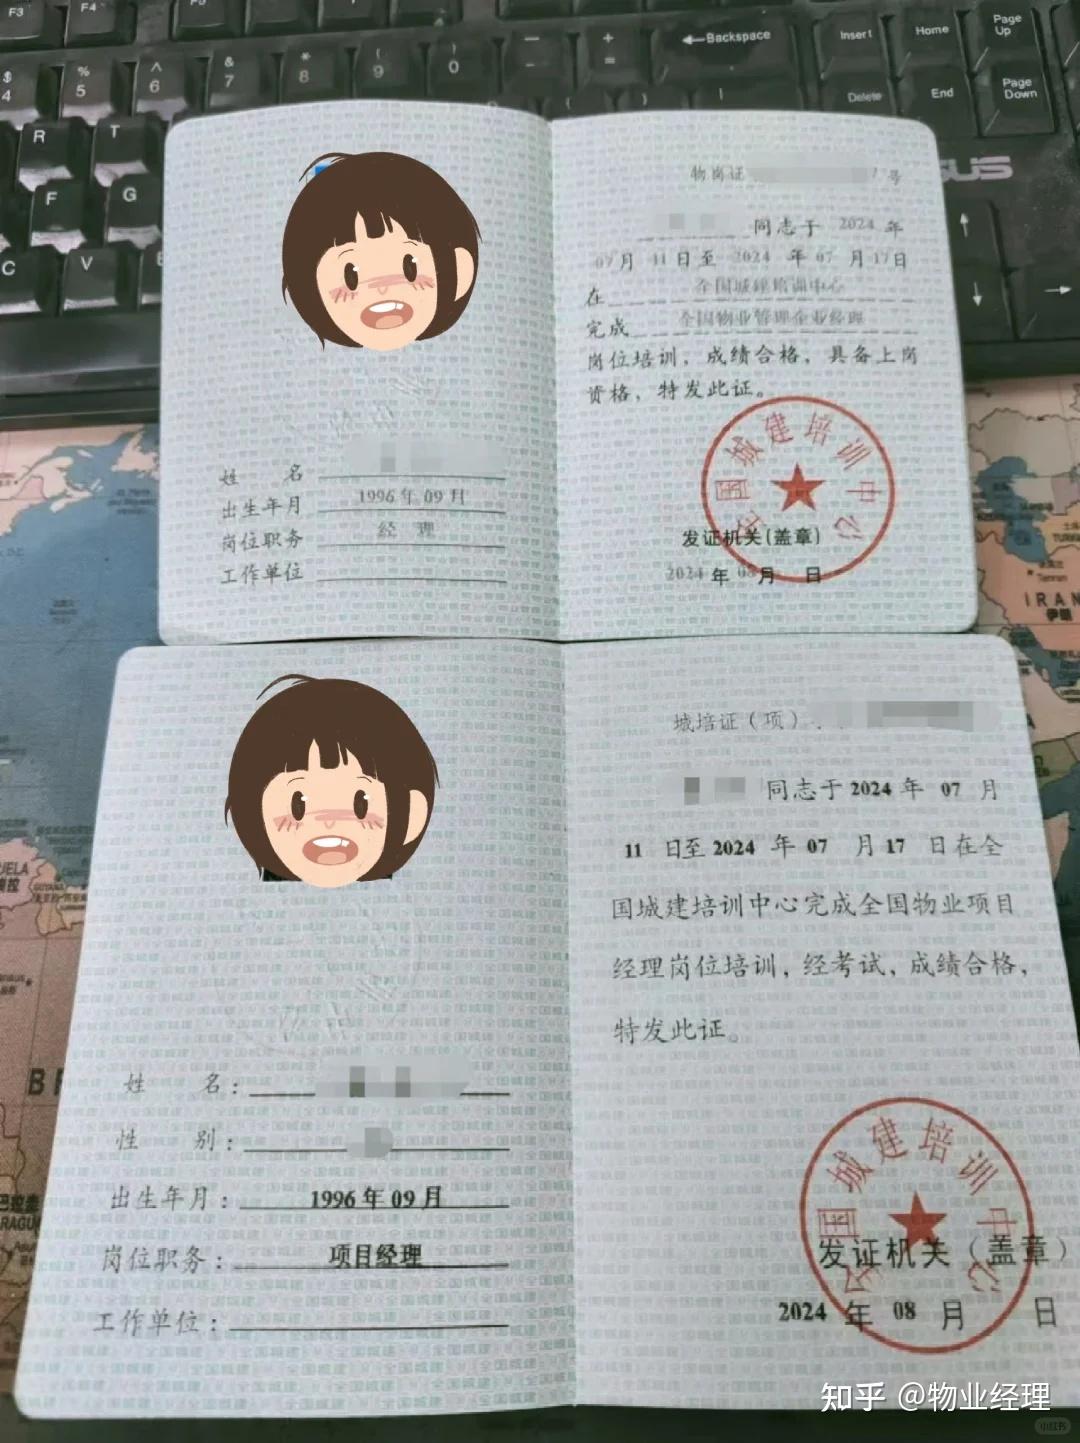 F3
F4
F5
$
4
%
5
^
6
&
7
*
8
(
9
)
0
—
-
+
=
←Backspace
Insert
Home
Page
Up
Delete
End
Page
Down
R
T
F
G
C
V
物岗证 号
同志于 2024 年
07月 11日至 2024 年 07 月17日
在 全国城建培训中心
完成 全国物业管理企业经理
岗位培训，成绩合格，具备上岗
资格，特发此证。
全国城建培训中心
发证机关(盖章)
2024 年 08月 日
姓 名
出生年月 1996 年 09 月
岗位职务 经 理
工作单位
IRAN
伊朗
城培证（项）
同志于 2024 年 07 月
11 日至 2024 年 07 月 17 日在全
国城建培训中心完成全国物业项目
经理岗位培训，经考试，成绩合格，
特发此证。
姓 名：
性 别：
出生年月：1996 年 09 月
岗位职务：项目经理
工作单位：
全国城建培训中心
发证机关（盖章）
2024 年 08 月 日
知乎 @物业经理
小红书